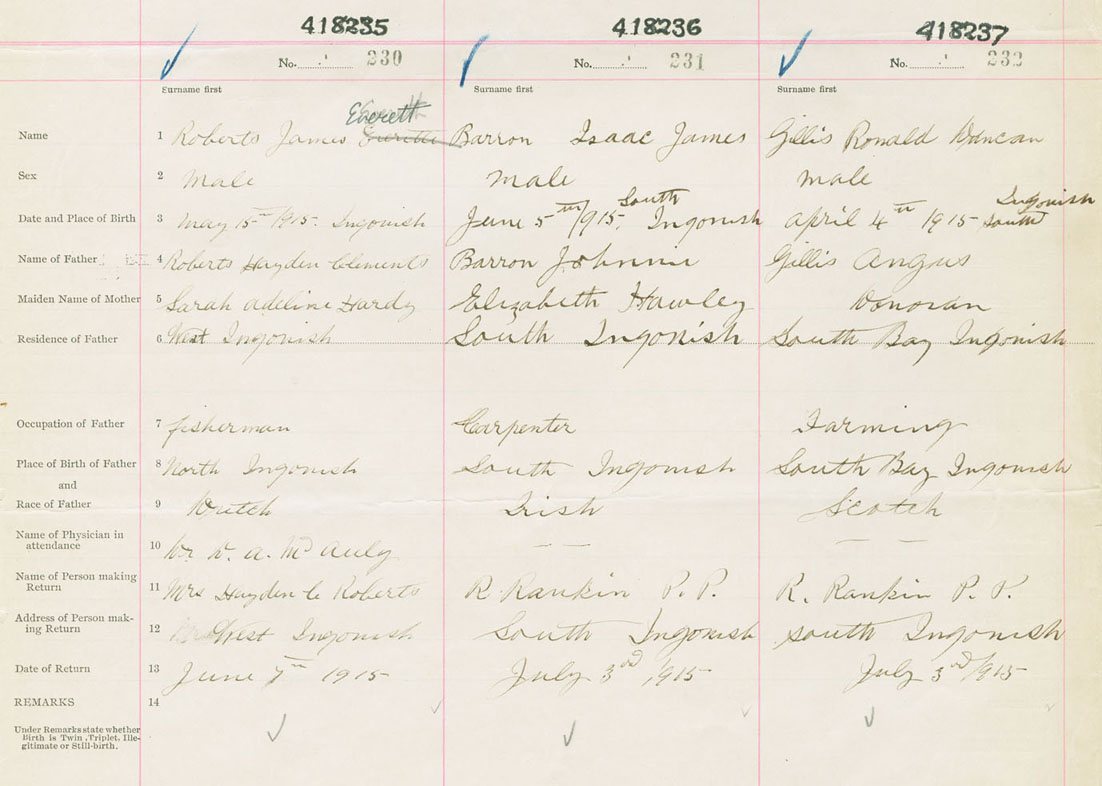 418235 418236 418237
No. 230 No. 231 No. 232
Surname first Surname first Surname first
Everett
Name 1 Roberts James Barron Isaac James Gillis Ronald Duncan
Sex 2 Male male male
South Ingonish
Date and Place of Birth 3 May 15th 1915. Ingonish June 5th 1915. Ingonish April 4th 1915 South
Name of Father 4 Roberts Hayden Clements Barron Johnnie Gillis Angus
Maiden Name of Mother 5 Sarah Adeline Hardy Elizabeth Hawley Donovan
Residence of Father 6 West Ingonish South Ingonish South Bay Ingonish
Occupation of Father 7 fisherman Carpenter Farming
Place of Birth of Father 8 North Ingonish South Ingonish South Bay Ingonish
and
Race of Father 9 Dutch Irish Scotch
Name of Physician in
attendance 10 Dr D. A. McAuly — — — —
Name of Person making
Return 11 Mrs Hayden C Roberts R. Rankin P. P. R. Rankin P. P.
Address of Person mak-
ing Return 12 West Ingonish South Ingonish South Ingonish
Date of Return 13 June 7th 1915 July 3rd 1915 July 3rd 1915
REMARKS 14
Under Remarks state whether
Birth is Twin, Triplet, Ille-
gitimate or Still-birth.